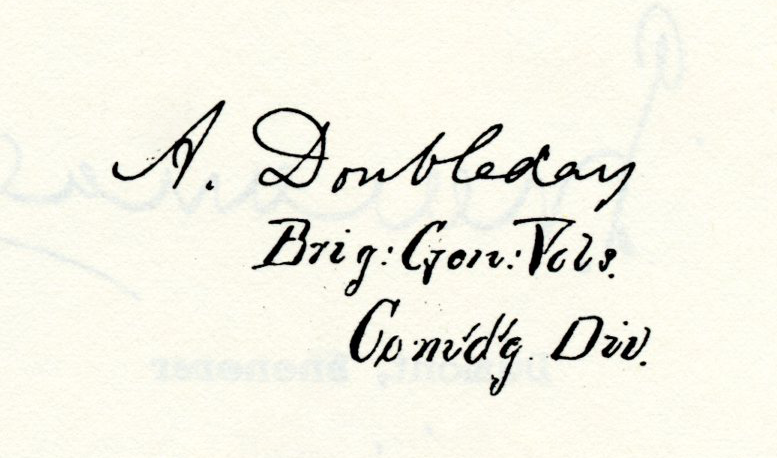 A. Doubleday
Brig: Gen: Vols.
Com'd'g Div.